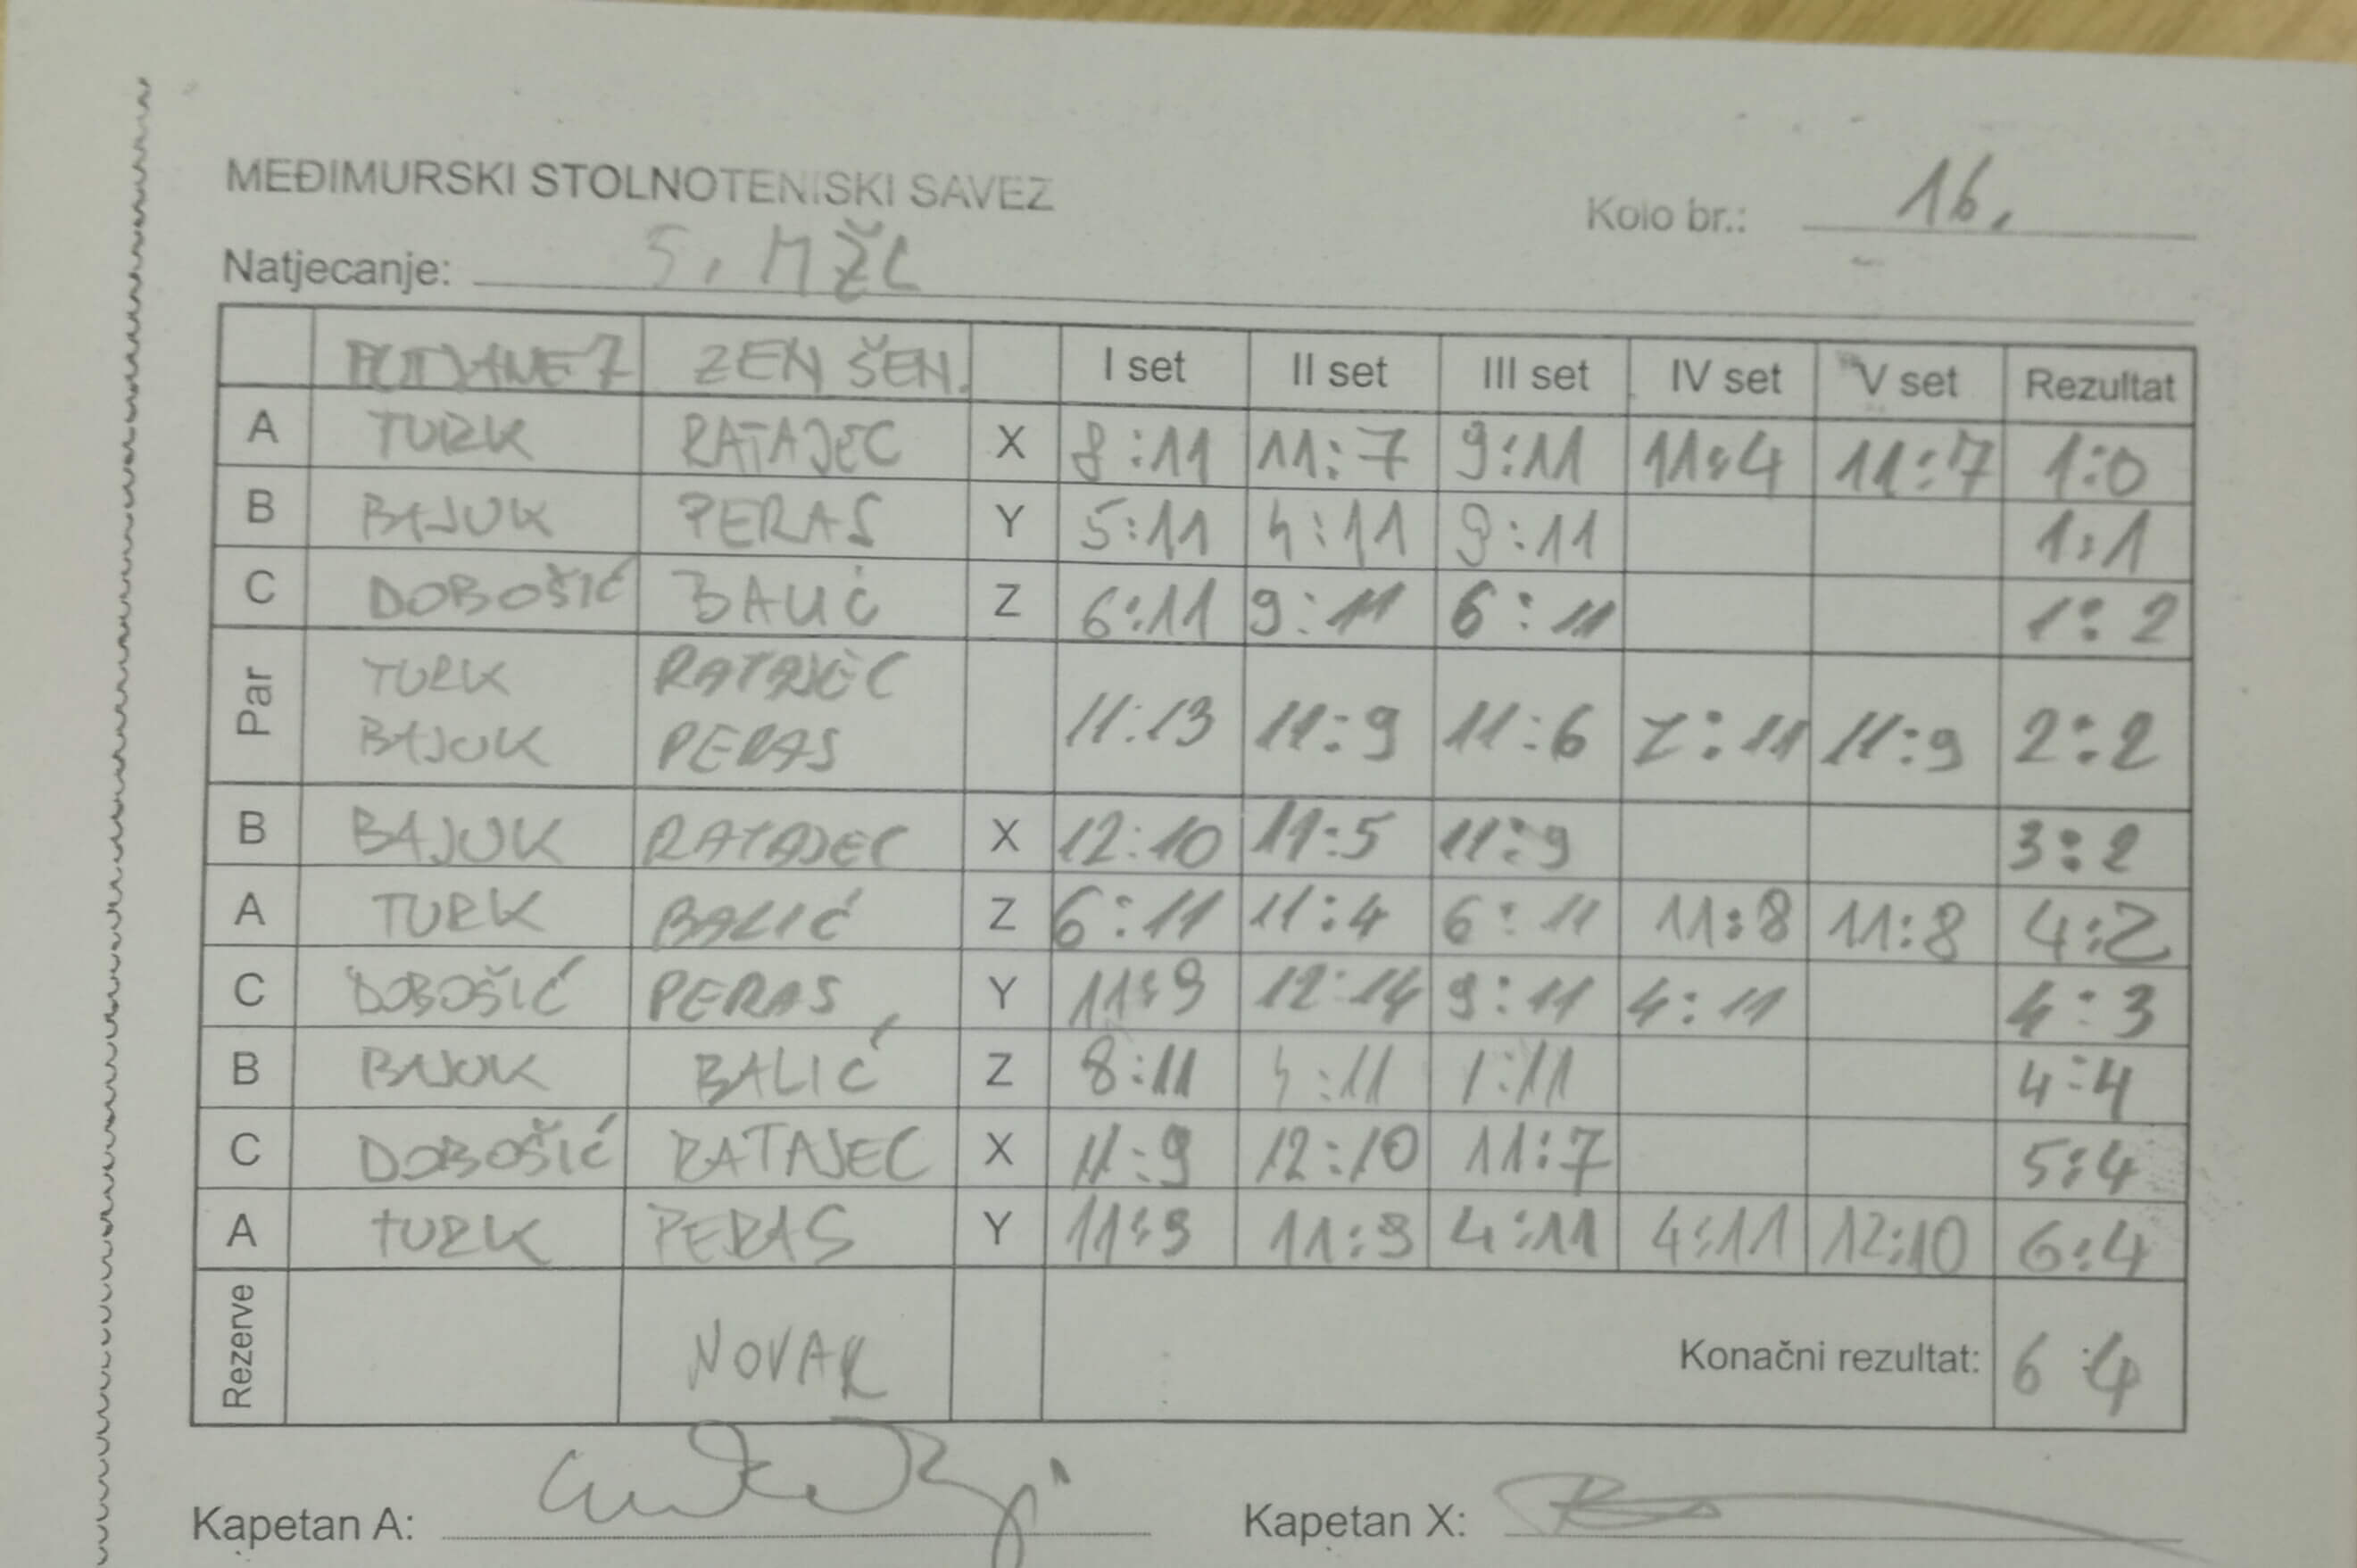 MEĐIMURSKI STOLNOTENISKI SAVEZ
Kolo br.: 16.
Natjecanje: 5. MŽL
ZEN ŠEN. I set II set III set IV set V set Rezultat
A TURK RATAJEC X 8:11 11:7 9:11 11:4 11:7 1:0
B BAJUK PERAS Y 5:11 4:11 9:11 1:1
C DOBOŠIĆ BALIĆ Z 6:11 9:11 6:11 1:2
Par TURK RATAJEC
BAJUK PERAS 11:13 11:9 11:6 7:11 11:9 2:2
B BAJUK RATAJEC X 12:10 11:5 11:9 3:2
A TURK BALIĆ Z 6:11 11:4 6:11 11:8 11:8 4:2
C DOBOŠIĆ PERAS Y 11:9 12:14 9:11 4:11 4:3
B BAJUK BALIĆ Z 8:11 4:11 1:11 4:4
C DOBOŠIĆ RATAJEC X 11:9 12:10 11:7 5:4
A TURK PERAS Y 11:9 11:9 4:11 4:11 12:10 6:4
Rezerve NOVAK Konačni rezultat: 6:4
Kapetan A: Kapetan X: